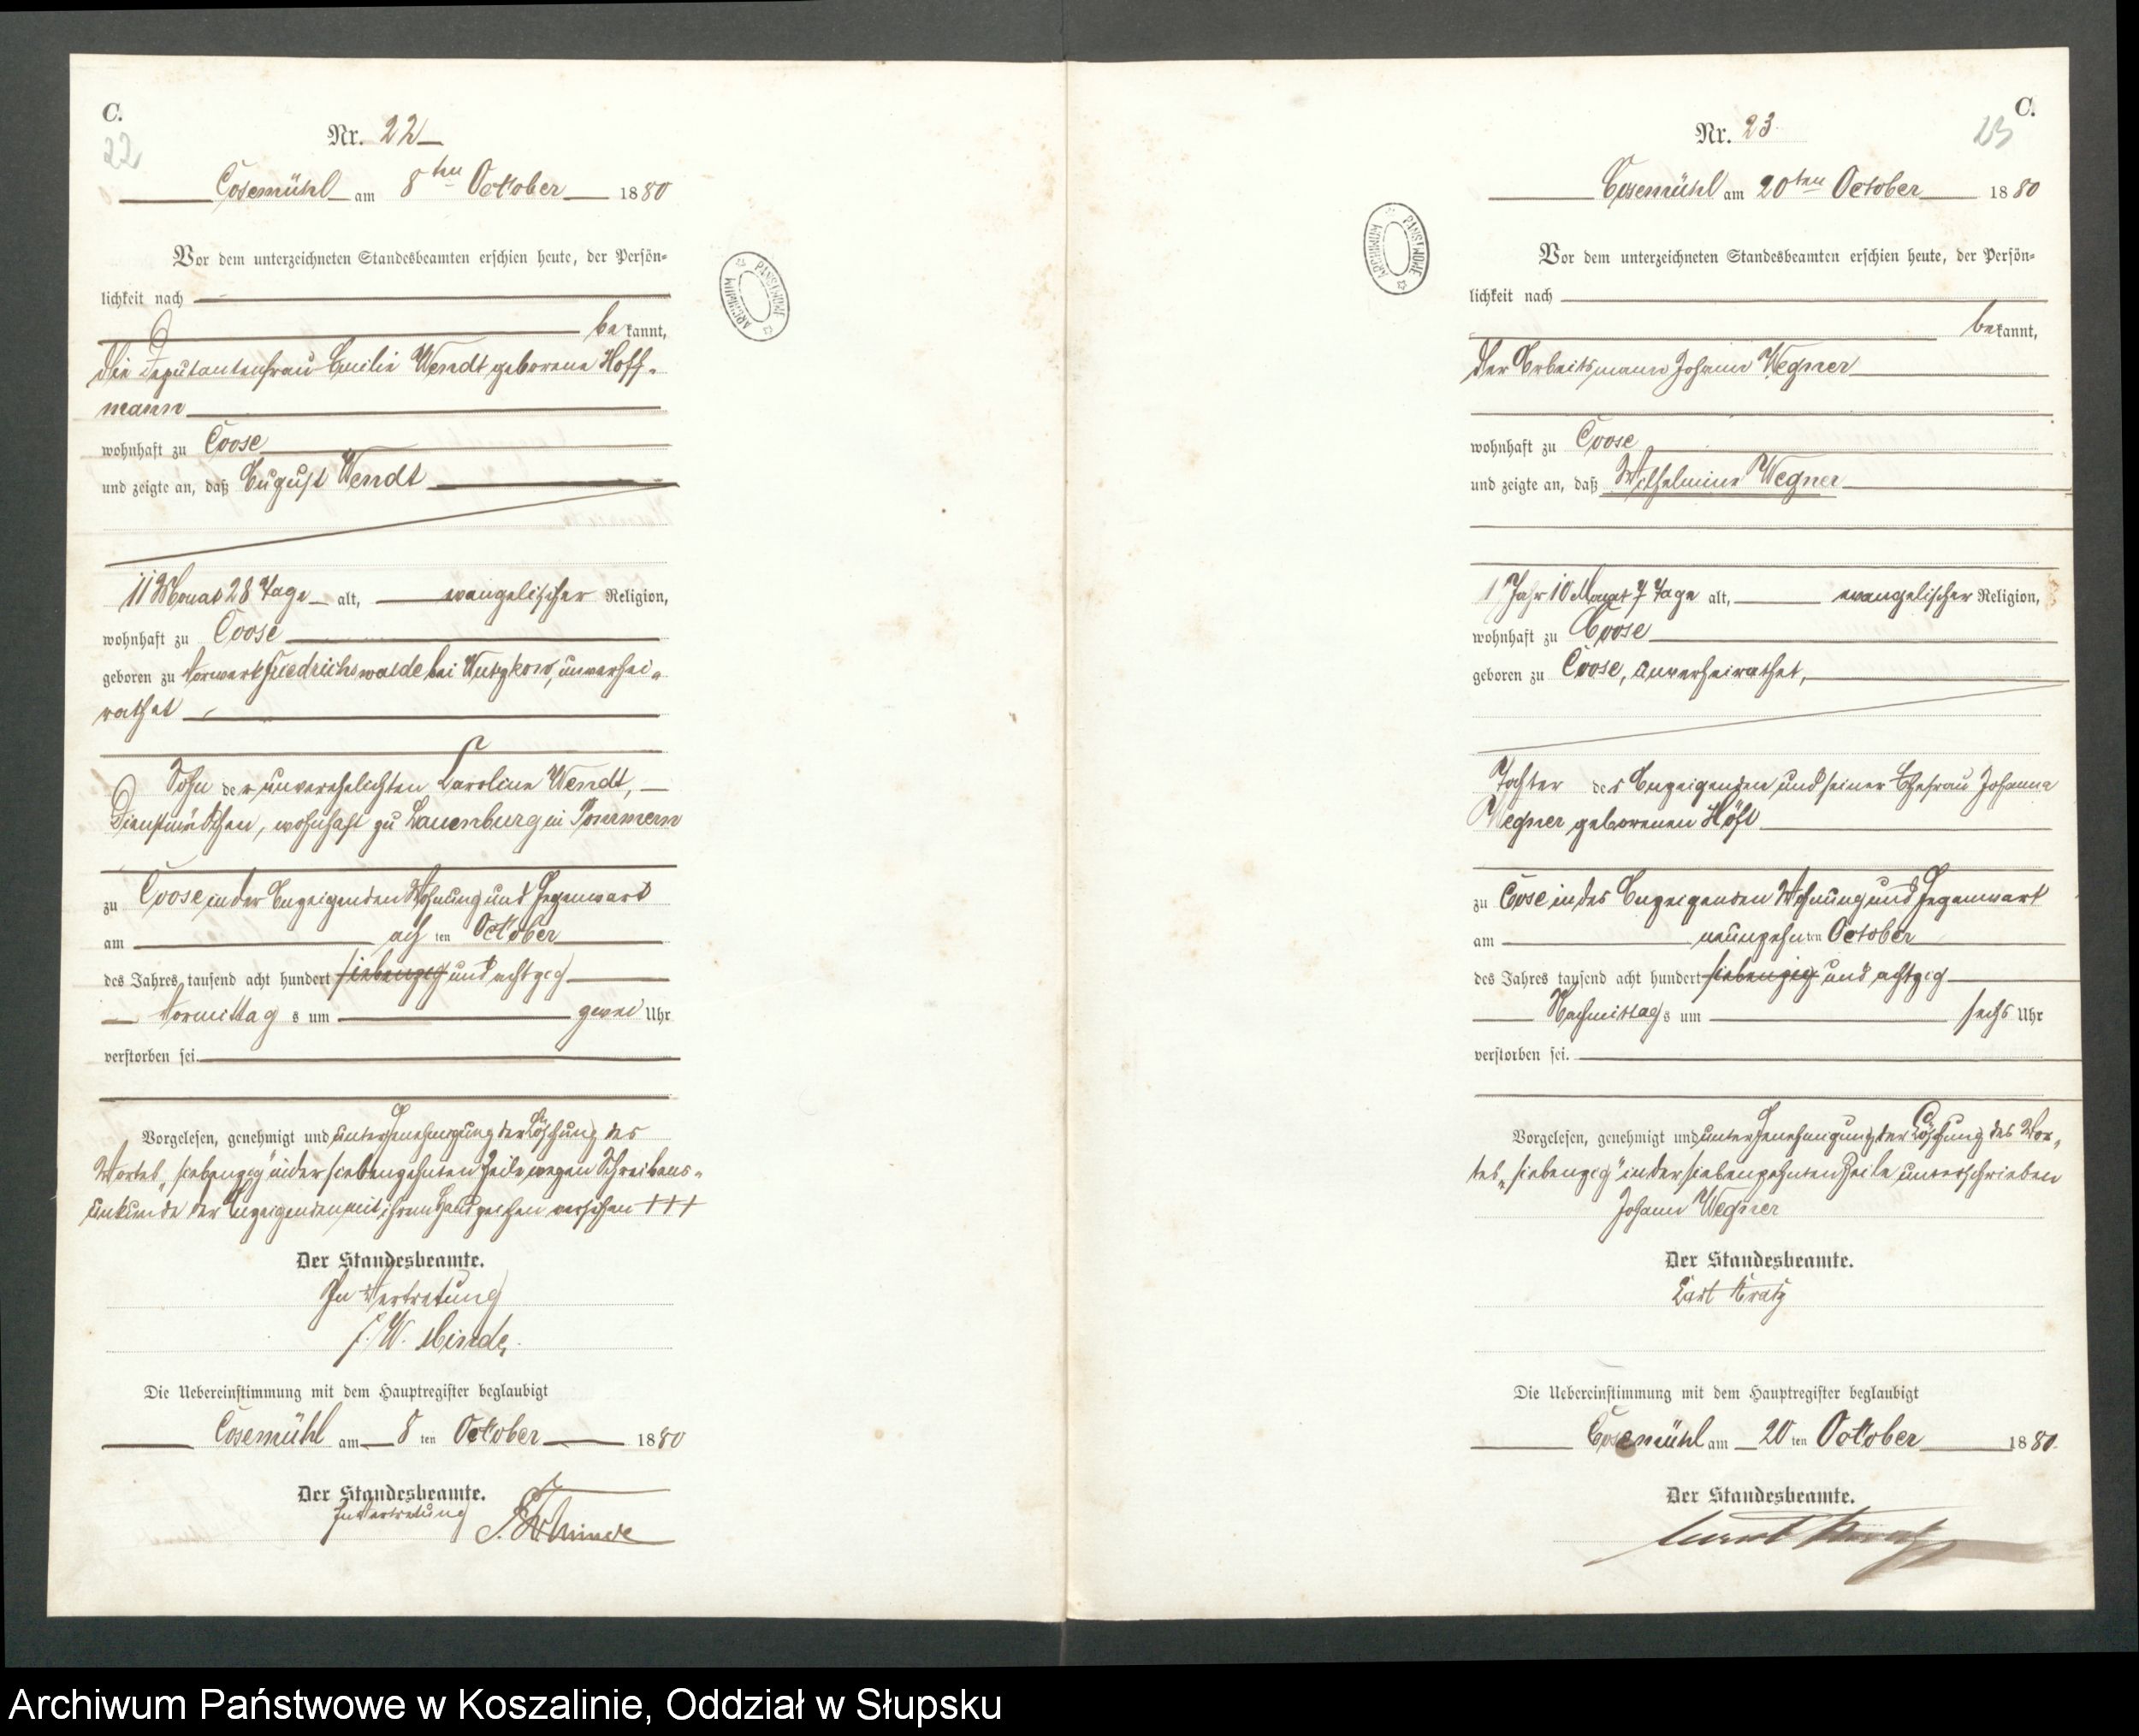 C.
22
Nr. 22
Cosemühl am 8ten October 1880
Vor dem unterzeichneten Standesbeamten erschien heute, der Persön-
lichkeit nach
bekannt,
die Deputantenfrau Emilie Wendt geborene Hoff-
mann
wohnhaft zu Coose
und zeigte an, daß August Wendt
11 Monat 28 Tage alt, evangelischer Religion,
wohnhaft zu Coose
geboren zu Vorwerk Friedrichswalde bei Wutzkow, unverhei-
rathet
Sohn der unverehelichten Caroline Wendt,
Dienstmädchen, wohnhaft zu Lauenburg in Pommern
zu Coose in der Anzeigenden Wohnung und Gegenwart
am achten October
des Jahres tausend acht hundert siebenzig und achtzig
Vormittags um zwei Uhr
verstorben sei.
Vorgelesen, genehmigt und unter Genehmigung der Löschung des
Wortes „siebenzig" in der siebenzehnten Zeile wegen Schreibens-
unkunde der Anzeigenden mit ihrem Handzeichen versehen +++
Der Standesbeamte.
In Vertretung
F. W. Minde.
Die Uebereinstimmung mit dem Hauptregister beglaubigt
Cosemühl am 8ten October 1880
Der Standesbeamte.
In Vertretung
F. W. Minde
ARCHIWUM PAŃSTWOWE
C.
23
Nr. 23
Cosemühl am 20ten October 1880
Vor dem unterzeichneten Standesbeamten erschien heute, der Persön-
lichkeit nach
bekannt,
der Arbeitsmann Johann Wegner
wohnhaft zu Coose
und zeigte an, daß Wilhelmine Wegner
1 Jahr 10 Monat 7 Tage alt, evangelischer Religion,
wohnhaft zu Coose
geboren zu Coose, unverheirathet,
Tochter des Anzeigenden und seiner Ehefrau Johanna
Wegner geborenen Höft
zu Coose in des Anzeigenden Wohnung und Gegenwart
am neunzehnten October
des Jahres tausend acht hundert siebenzig und achtzig
Nachmittags um sechs Uhr
verstorben sei.
Vorgelesen, genehmigt und unter Genehmigung der Löschung des Wor-
tes „siebenzig" in der siebenzehnten Zeile unterschrieben
Johann Wegner
Der Standesbeamte.
Kratz
Die Uebereinstimmung mit dem Hauptregister beglaubigt
Cosemühl am 20ten October 1880.
Der Standesbeamte.
Kratz
ARCHIWUM PAŃSTWOWE
Archiwum Państwowe w Koszalinie, Oddział w Słupsku